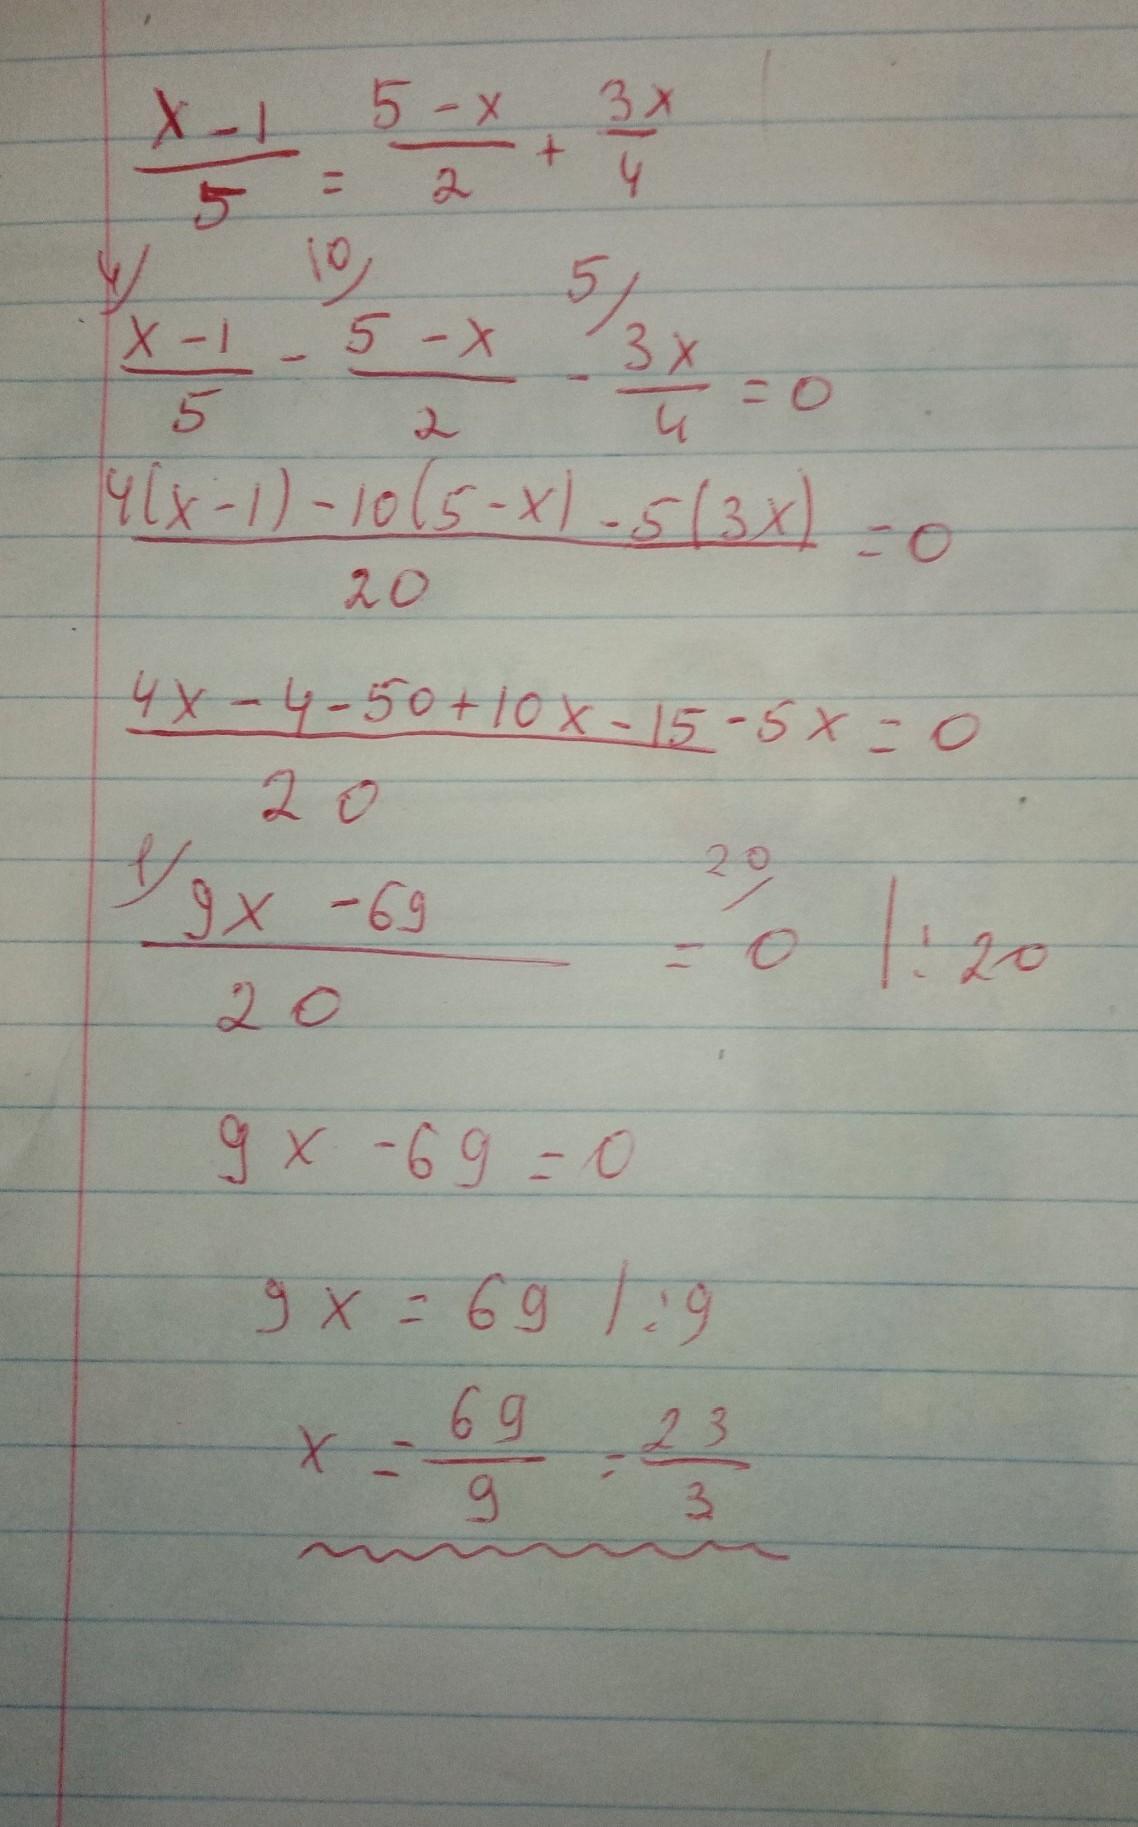 x-1/5 = 5-x/2 + 3x/4
4/ 10/ 5/
x-1/5 - 5-x/2 - 3x/4 = 0
4(x-1)-10(5-x)-5(3x)/20 = 0
4x-4-50+10x-15-5x/20 = 0
1/ 9x-69/20 20/ = 0 |:20
9x-69=0
9x=69 /:9
x = 69/9 = 23/3